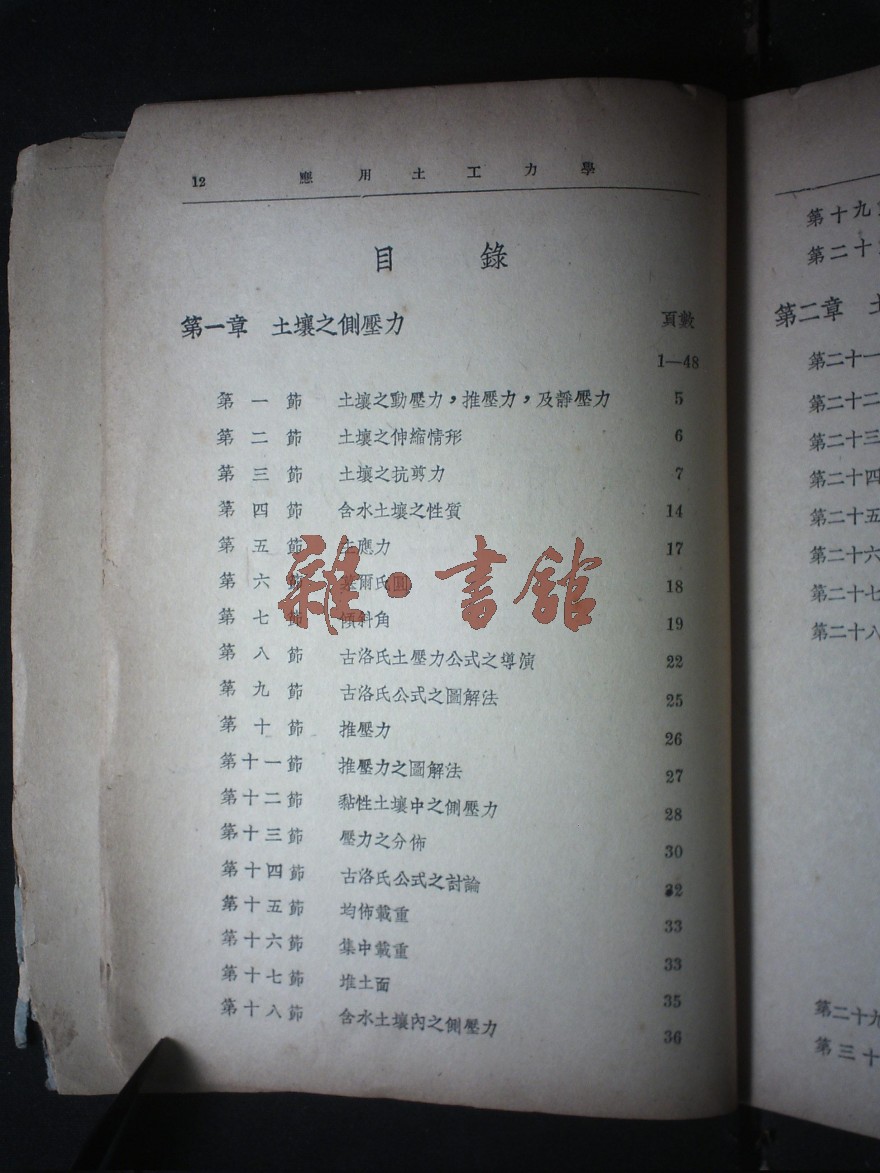 12 應用土工力學
目錄
第一章 土壤之側壓力 頁數
1—48
第一節 土壤之動壓力，推壓力，及靜壓力 5
第二節 土壤之伸縮情形 6
第三節 土壤之抗剪力 7
第四節 含水土壤之性質 14
第五節 主應力 17
第六節 爾氏圓 18
第七節 傾斜角 19
第八節 古洛氏土壓力公式之導演 22
第九節 古洛氏公式之圖解法 25
第十節 推壓力 26
第十一節 推壓力之圖解法 27
第十二節 黏性土壤中之側壓力 28
第十三節 壓力之分佈 30
第十四節 古洛氏公式之討論 32
第十五節 均佈載重 33
第十六節 集中載重 33
第十七節 堆土面 35
第十八節 含水土壤內之側壓力 36
雜·書館
第十九
第二十
第二章 土
第二十一
第二十二
第二十三
第二十四
第二十五
第二十六
第二十七
第二十八
第二十九
第三十